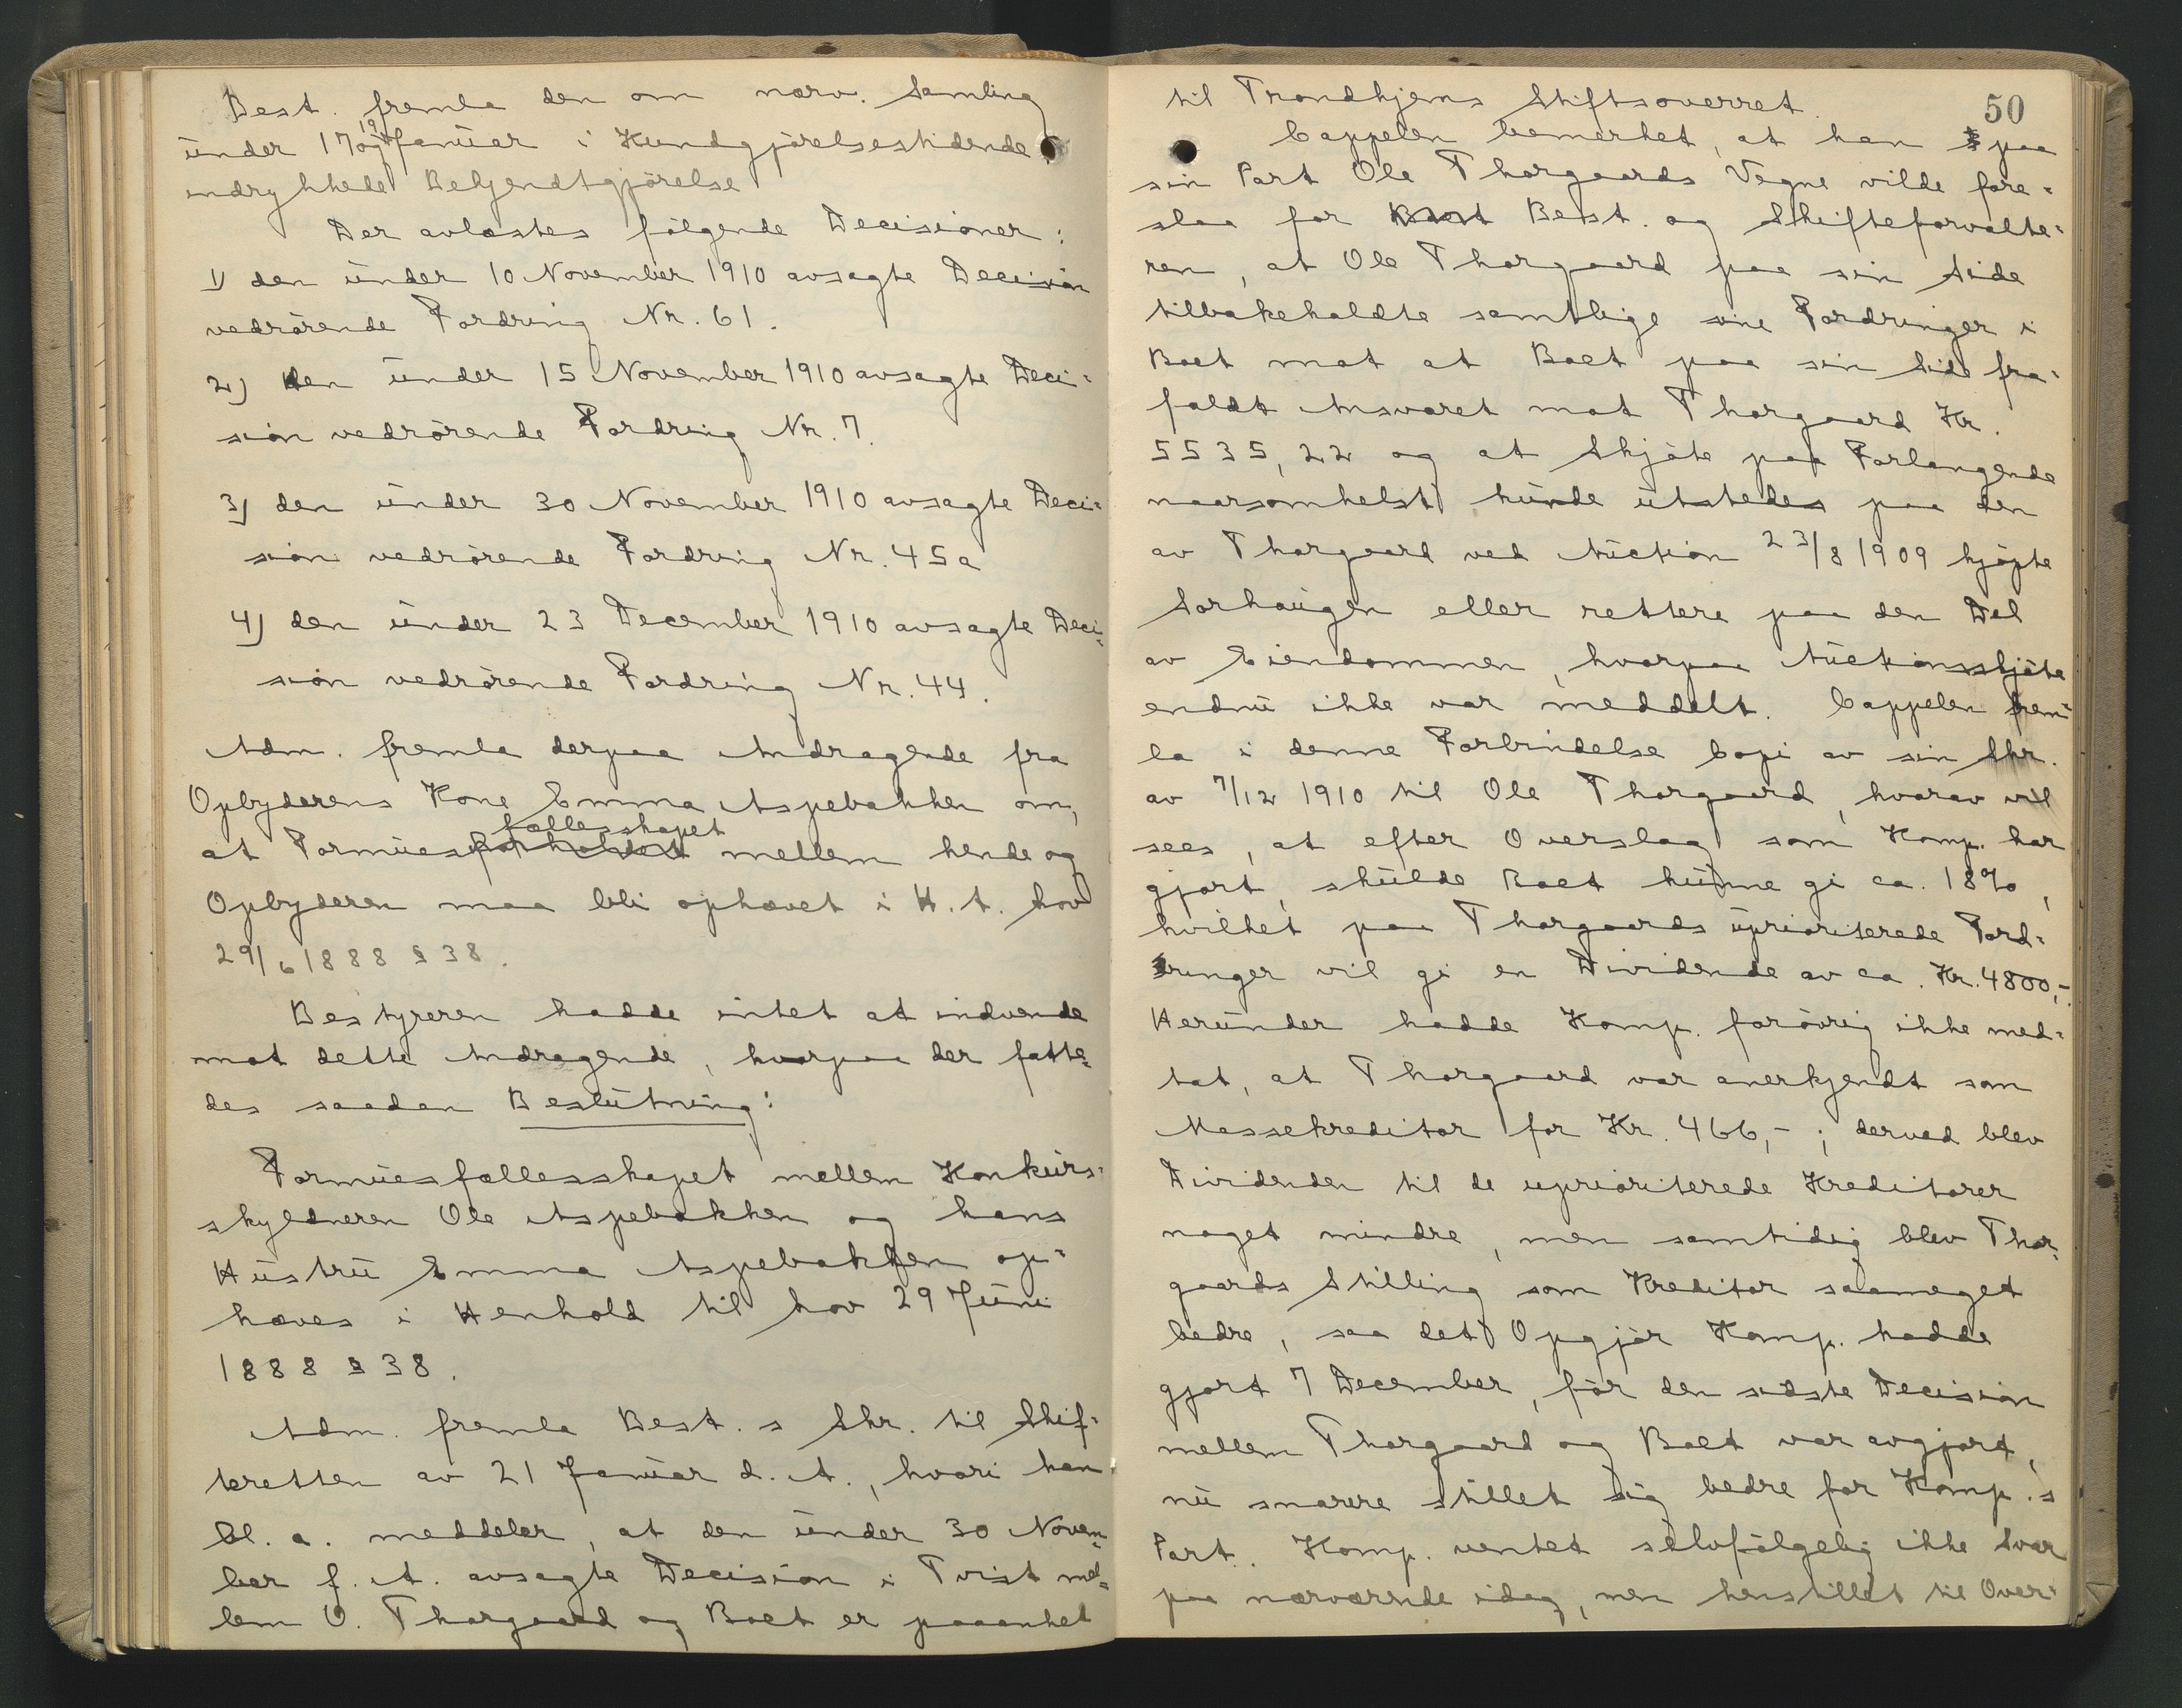 Best. fremla den om nærv. Samling
under 17 og 19 Januar i Kundgjørelsestidende
indrykkede Bekjendtgjørelse
Der avlæstes følgende Decisioner:
1) den under 10 November 1910 avsagte Decision
vedrørende Fordring Nr. 61.
2) Den under 15 November 1910 avsagte Deci=
sion vedrørende Fordring Nr. 7.
3) den under 30 November 1910 avsagte Deci=
sion vedrørende Fordring Nr. 45a
4) den under 23 December 1910 avsagte Deci=
sion vedrørende Fordring Nr. 44.
Adm. fremla derpaa Andragende fra
Opbyderens Kone Emma Aspebakken om,
fællesskapet
at Formuesforholdet mellem hende og
Opbyderen maa bli ophævet i H. t. Lov
29/6 1888 § 38.
Bestyreren hadde intet at indvende
mot dette Andragende, hvorpaa der fatte=
des saadan Beslutning:
Formuesfællesskapet mellem Konkurs=
skyldneren Ole Aspebakken og hans
Hustru Emma Aspebakken op=
hæves i Henhold til Lov 29 Juni
1888 § 38.
Adm. fremla Best.s Skr. til Skif=
teretten av 21 Januar d. A., hvori han
bl. a. meddeler, at den under 30 Novem=
ber f. A. avsagte Decision i Tvist mel=
lem O. Thorgaard og Boet er paaanket
50
til Trondhjems Stiftsoverret.
Cappelen bemerket, at han paa
sin Part Ole Thorgaards Vegne vilde fore=
slaa for Best. og Skifteforvalte=
ren, at Ole Thorgaard paa sin Side
tilbakeholdte samtlige sine Fordringer i
Boet mot at Boet paa sin Side fra=
faldt Ansvaret mot Thorgaard Kr.
5535,22 og at Skjøte paa Forlangende
naarsomhelst kunde utstedes paa den
av Thorgaard ved Auction 23/8 1909 kjøpte
Sorhaugen eller rettere paa den Del
av Eiendommen, hvorpaa Auctionsskjøte
endnu ikke var meddelt. Cappelen frem=
la i denne Forbindelse Copi av sin Skr.
av 7/12 1910 til Ole Thorgaard, hvorav vil
sees, at efter Overslag som Komp. har
gjort, skulde Boet kunne gi ca. 18%,
hvilket paa Thorgaards uprioriterede Ford=
ringer vil gi en Dividende av ca. Kr. 4800,-.
Herunder hadde Komp. forøvrig ikke med=
tat, at Thorgaard var anerkjendt som
Massekreditor for Kr. 466,-; derved blev
Dividenden til de uprioriterede Kreditorer
noget mindre, men samtidig blev Thor=
gaards Stilling som Kreditor saameget
bedre, saa det Opgjør Komp. hadde
gjort 7 December, før den sidste Decision
mellem Thorgaard og Boet var avgjort,
nu snarere stillet sig bedre for Komp.s
Part. Komp. ventet selvfølgelig ikke Svar
paa nærværende idag, men henstillet til Over=